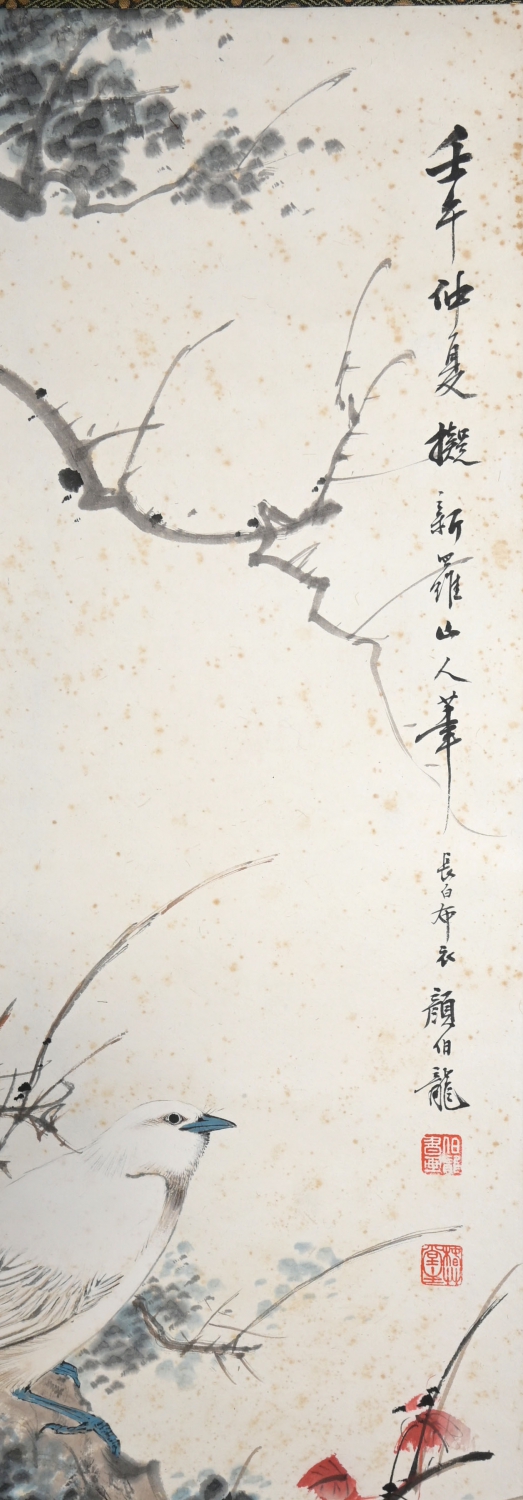 壬午仲夏擬新羅山人筆
長白布衣顏伯龍
伯龍書畫